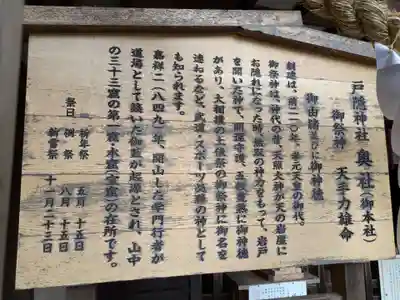 戸隠神社 奥社(御本社)
御祭神 天手力雄命
御由緒並びに御神徳
創建は、前二一〇年、孝元天皇の御代。
御祭神は、神代の昔、天照大神が天の岩屋に
お隠れになった時、無双の神力をもって、岩戸
を開いた神で、開運守護、五穀豊穣に御神徳
があり、大相撲の土俵祭の御祭神に御名を
連ねるなど、武道・スポーツ必勝の神として
も知られます。
嘉祥二(八四九)年、開山した学門行者が
道場として使われた
の三十三窟の第一窟・本窟(宝窟)の在所です。
祭日 祈年祭 五月 十五日
例祭 八月 十五日
新嘗祭 十一月二十三日